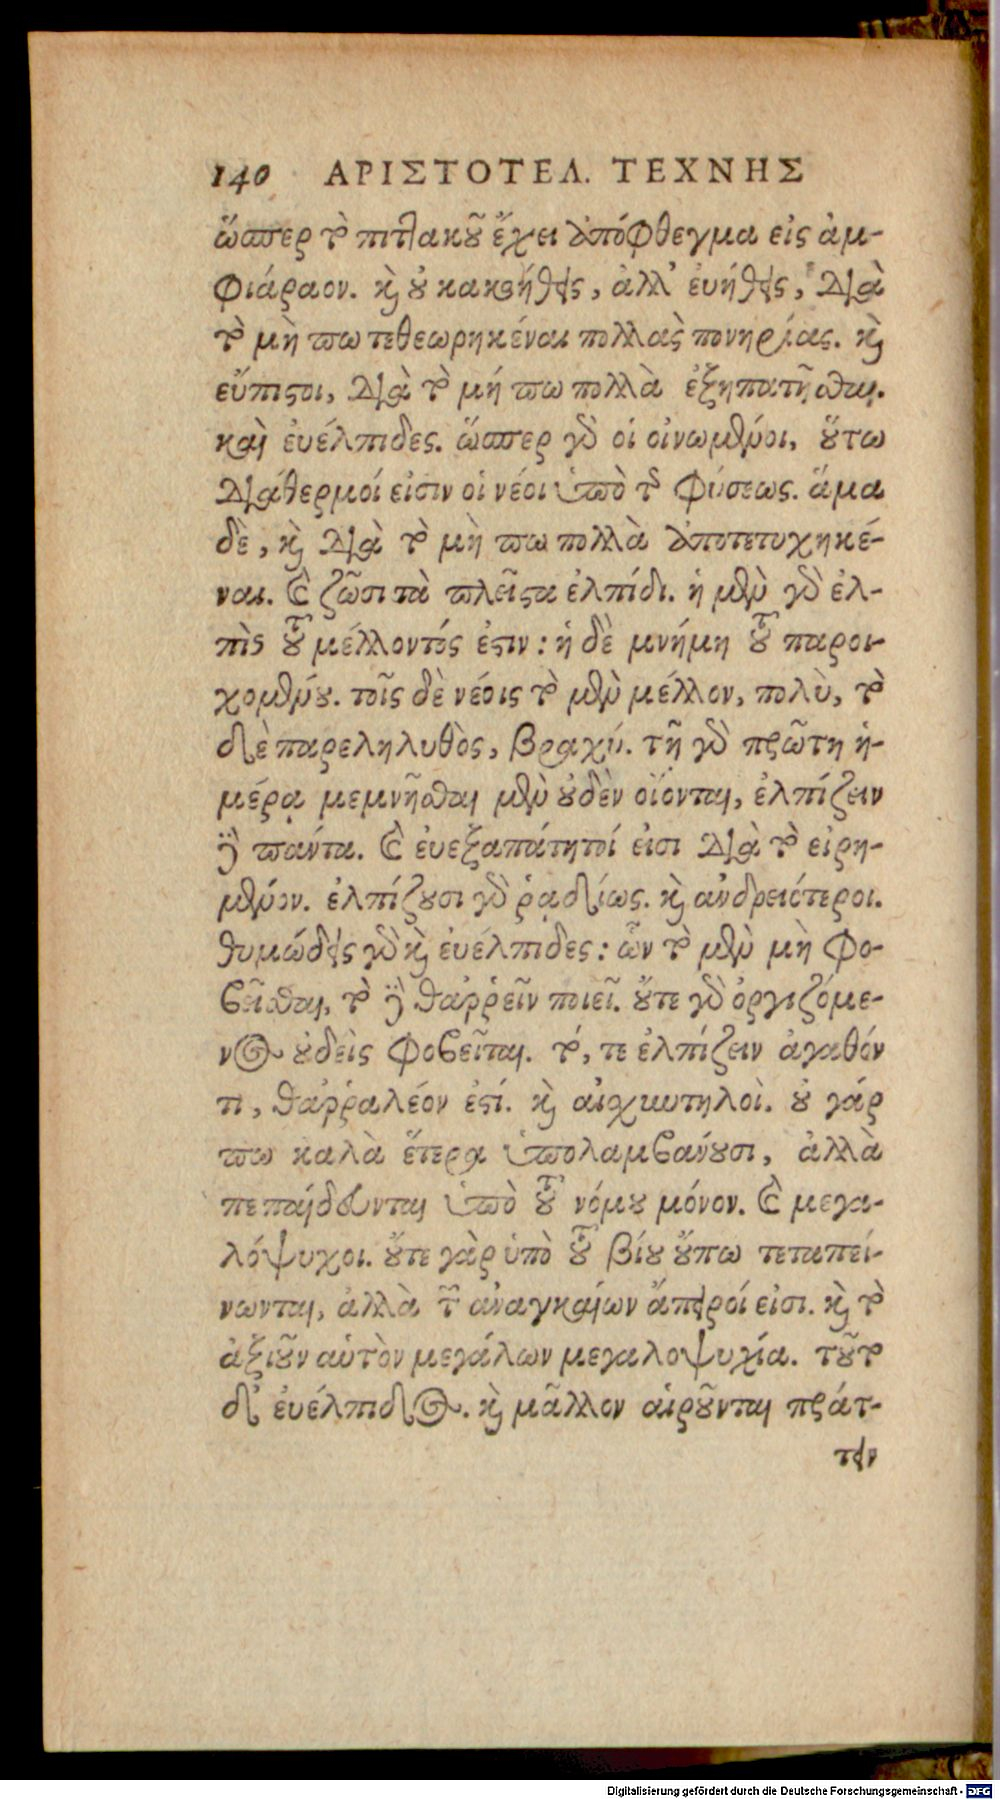 140 ΑΡΙΣΤΟΤΕΛ. ΤΕΧΝΗΣ
ὥσπερ τὸ πιττακοῦ ἔχει ἀπόφθεγμα εἰς ἀμ-
φιάραον. καὶ οὐ κακοήθεις, ἀλλ' εὐήθεις, διὰ
τὸ μὴ πω τεθεωρηκέναι πολλὰς πονηρίας. καὶ
εὔπιστοι, διὰ τὸ μή πω πολλὰ ἐξηπατῆσθαι.
καὶ εὐέλπιδες. ὥσπερ γὰρ οἱ οἰνωμένοι, οὕτω
διάθερμοί εἰσιν οἱ νέοι ὑπὸ τῆς φύσεως. ἅμα
δὲ, καὶ διὰ τὸ μὴ πω πολλὰ ἀποτετυχηκέ-
ναι. καὶ ζῶσι τὰ πλεῖστα ἐλπίδι. ἡ μὲν γὰρ ἐλ-
πὶς τοῦ μέλλοντός ἐστιν: ἡ δὲ μνήμη τοῦ παροι-
χομένου. τοῖς δὲ νέοις τὸ μὲν μέλλον, πολὺ, τὸ
δὲ παρεληλυθὸς, βραχύ. τῇ γὰρ πρώτη ἡ-
μέρᾳ μεμνῆσθαι μὲν οὐδὲν οἴονται, ἐλπίζειν
δὲ πάντα. καὶ εὐεξαπάτητοί εἰσι διὰ τὸ εἰρη-
μένον. ἐλπίζουσι γὰρ ῥᾳδίως. καὶ ἀνδρειότεροι.
θυμώδεις γὰρ καὶ εὐέλπιδες: ὧν τὸ μὲν μὴ φο-
βεῖσθαι, τὸ δὲ θαῤῥεῖν ποιεῖ. οὔτε γὰρ ὀργιζόμε-
νος οὐδεὶς φοβεῖται. τό, τε ἐλπίζειν ἀγαθόν
τι, θαῤῥαλέον ἐστί. καὶ αἰσχυντηλοὶ. οὐ γάρ
πω καλὰ ἕτερα ὑπολαμβάνουσι, ἀλλὰ
πεπαίδευνται ὑπὸ τοῦ νόμου μόνον. καὶ μεγα-
λόψυχοι. οὔτε γὰρ ὑπὸ τοῦ βίου οὔπω τεταπεί-
νωνται, ἀλλὰ τῶν ἀναγκαίων ἄπειροί εἰσι. καὶ τὸ
ἀξιοῦν αὑτὸν μεγάλων μεγαλοψυχία. τοῦτο
δ' εὐέλπιδος. καὶ μᾶλλον αἱροῦνται πράτ-
τειν
Digitalisierung gefördert durch die Deutsche Forschungsgemeinschaft - DFG